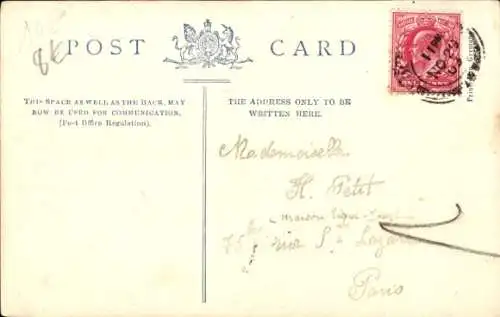 8k
POST CARD
THIS SPACE AS WELL AS THE BACK, MAY
NOW BE USED FOR COMMUNICATION.
(Post Office Regulation).
THE ADDRESS ONLY TO BE
WRITTEN HERE.
Mademoiselle
H. Petit
maison
75 rue St Lazare
Paris